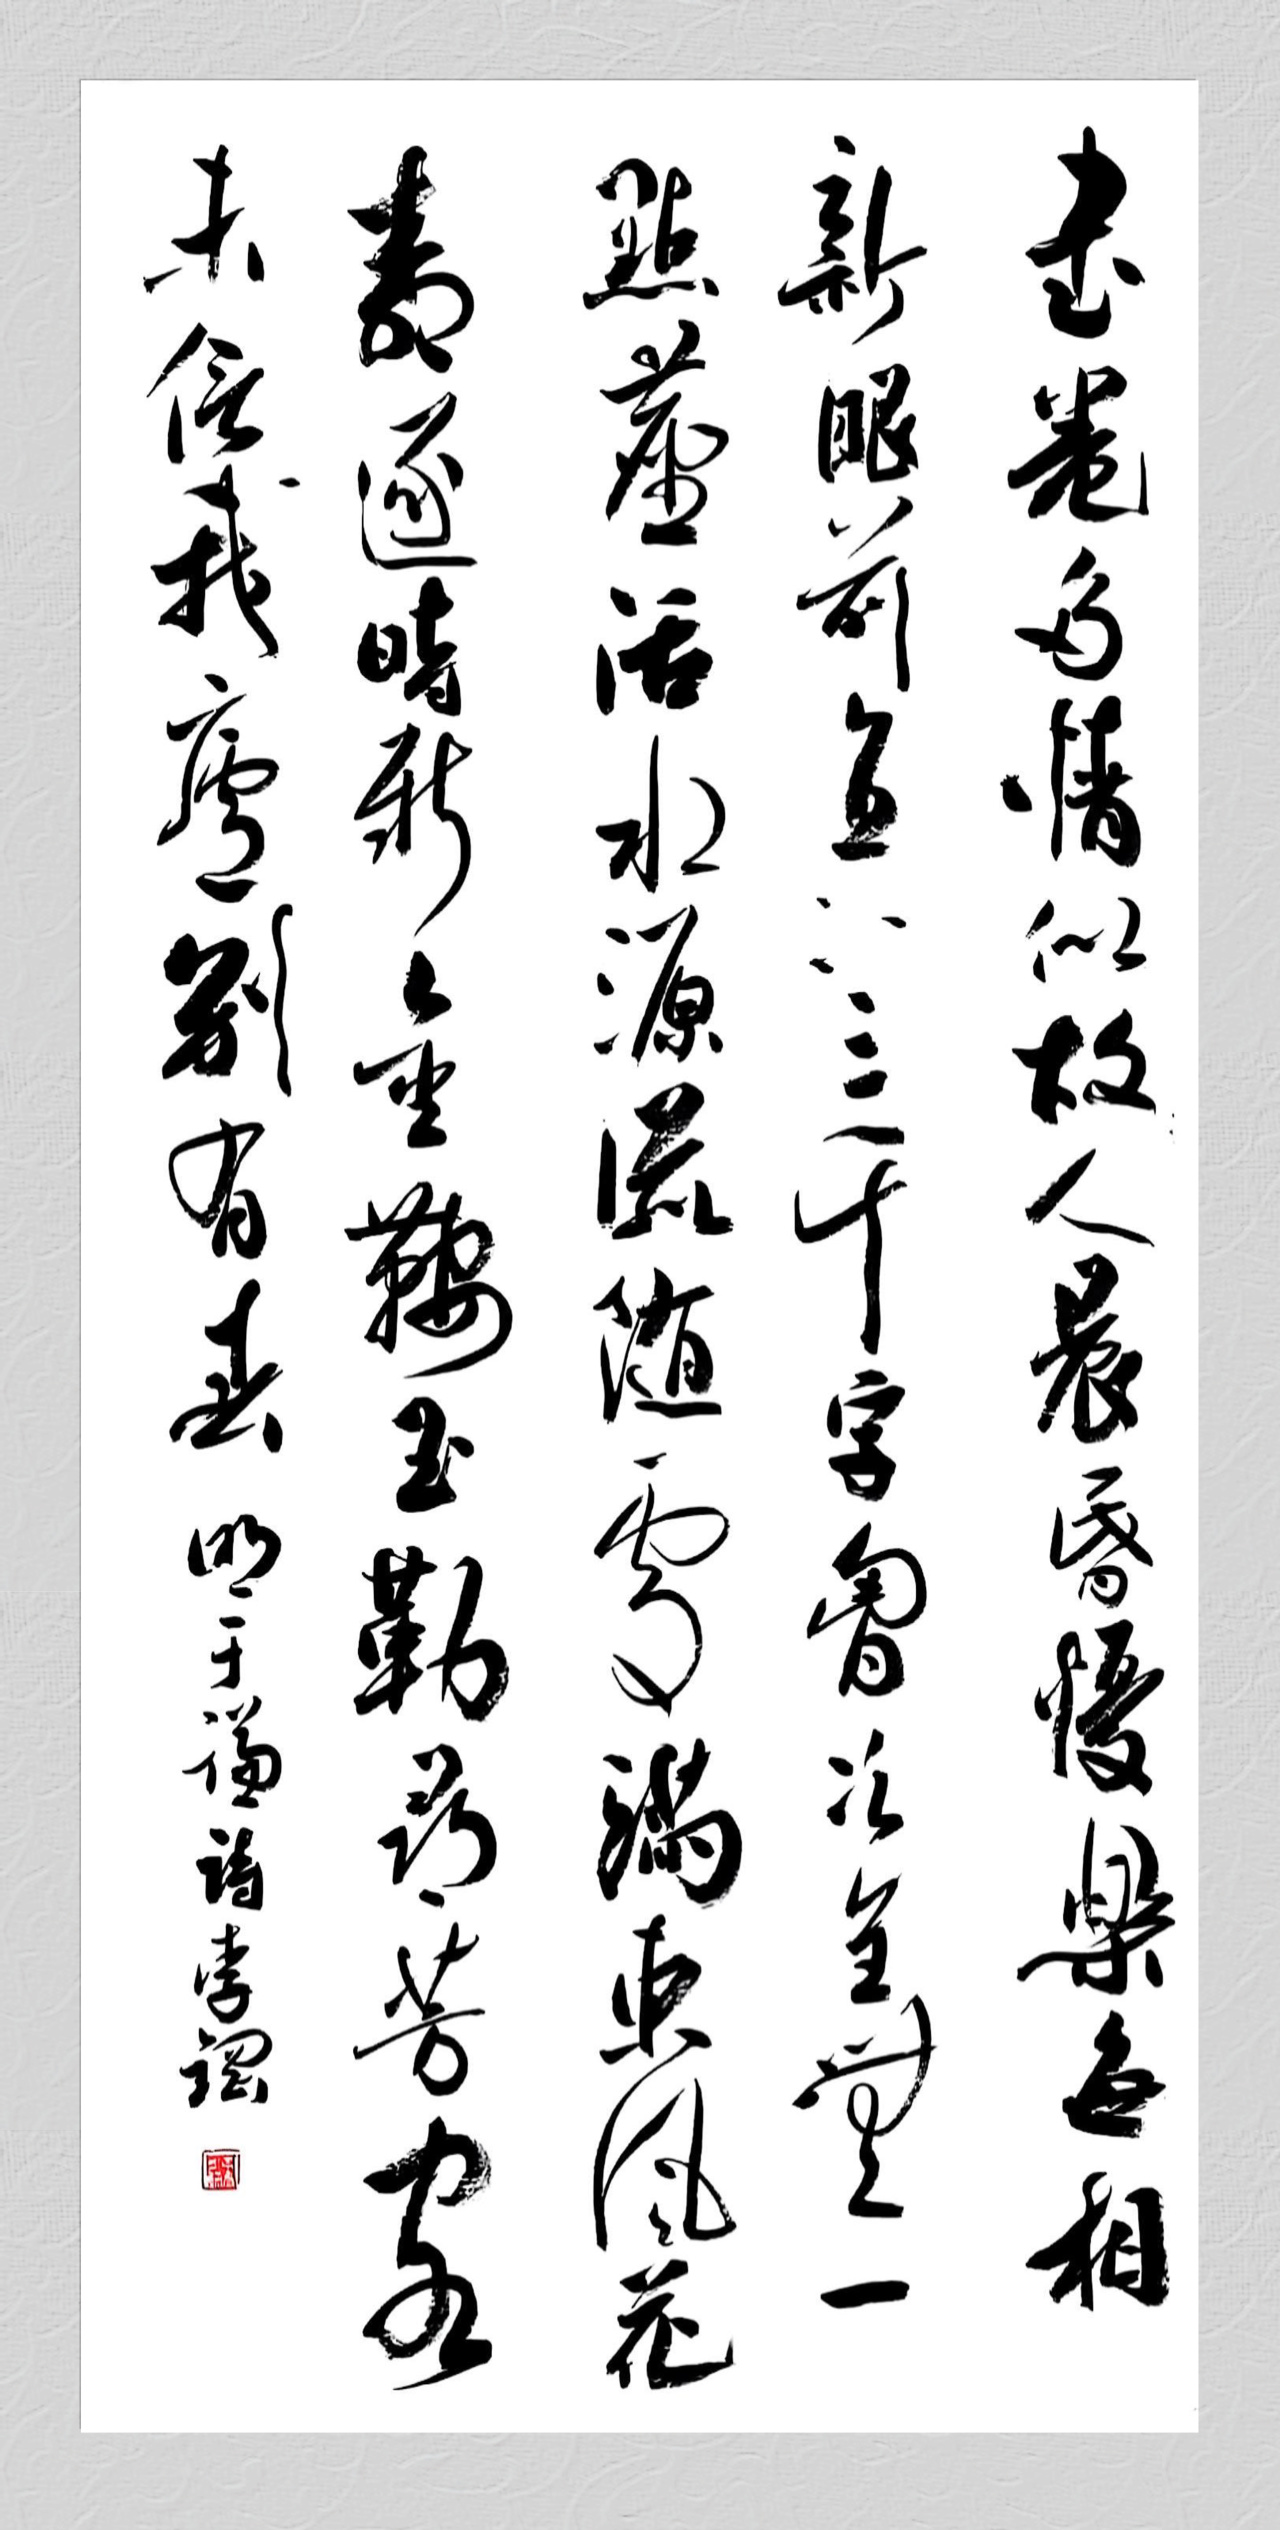 書卷多情似故人晨昏懮樂每相
新眼前直下三千字胸次全無一
點塵活水源流隨處滿東風花
柳逐時新金鞍玉勒尋芳客
未信我廬別有春 明于謙詩李